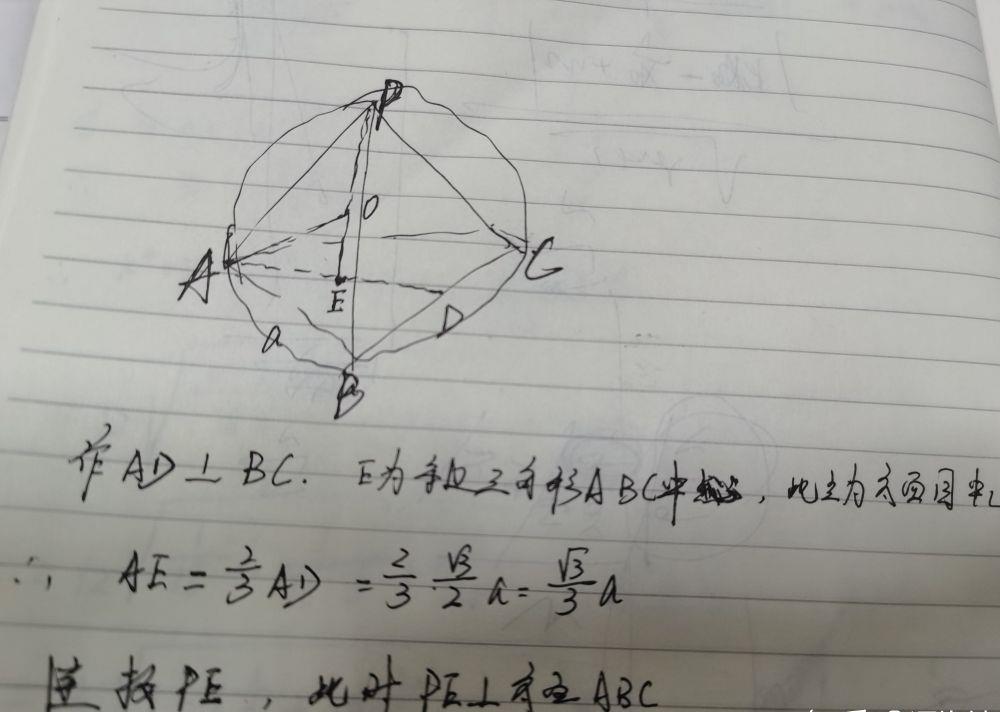 P
O
A
C
E
D
a
B
作 AD⊥BC. E为 三角形ABC中 , 此 为 圆中心
∴ AE = 2/3 AD = 2/3 · √3/2 a = √3/3 a
连接PE , 此时 PE⊥ ABC